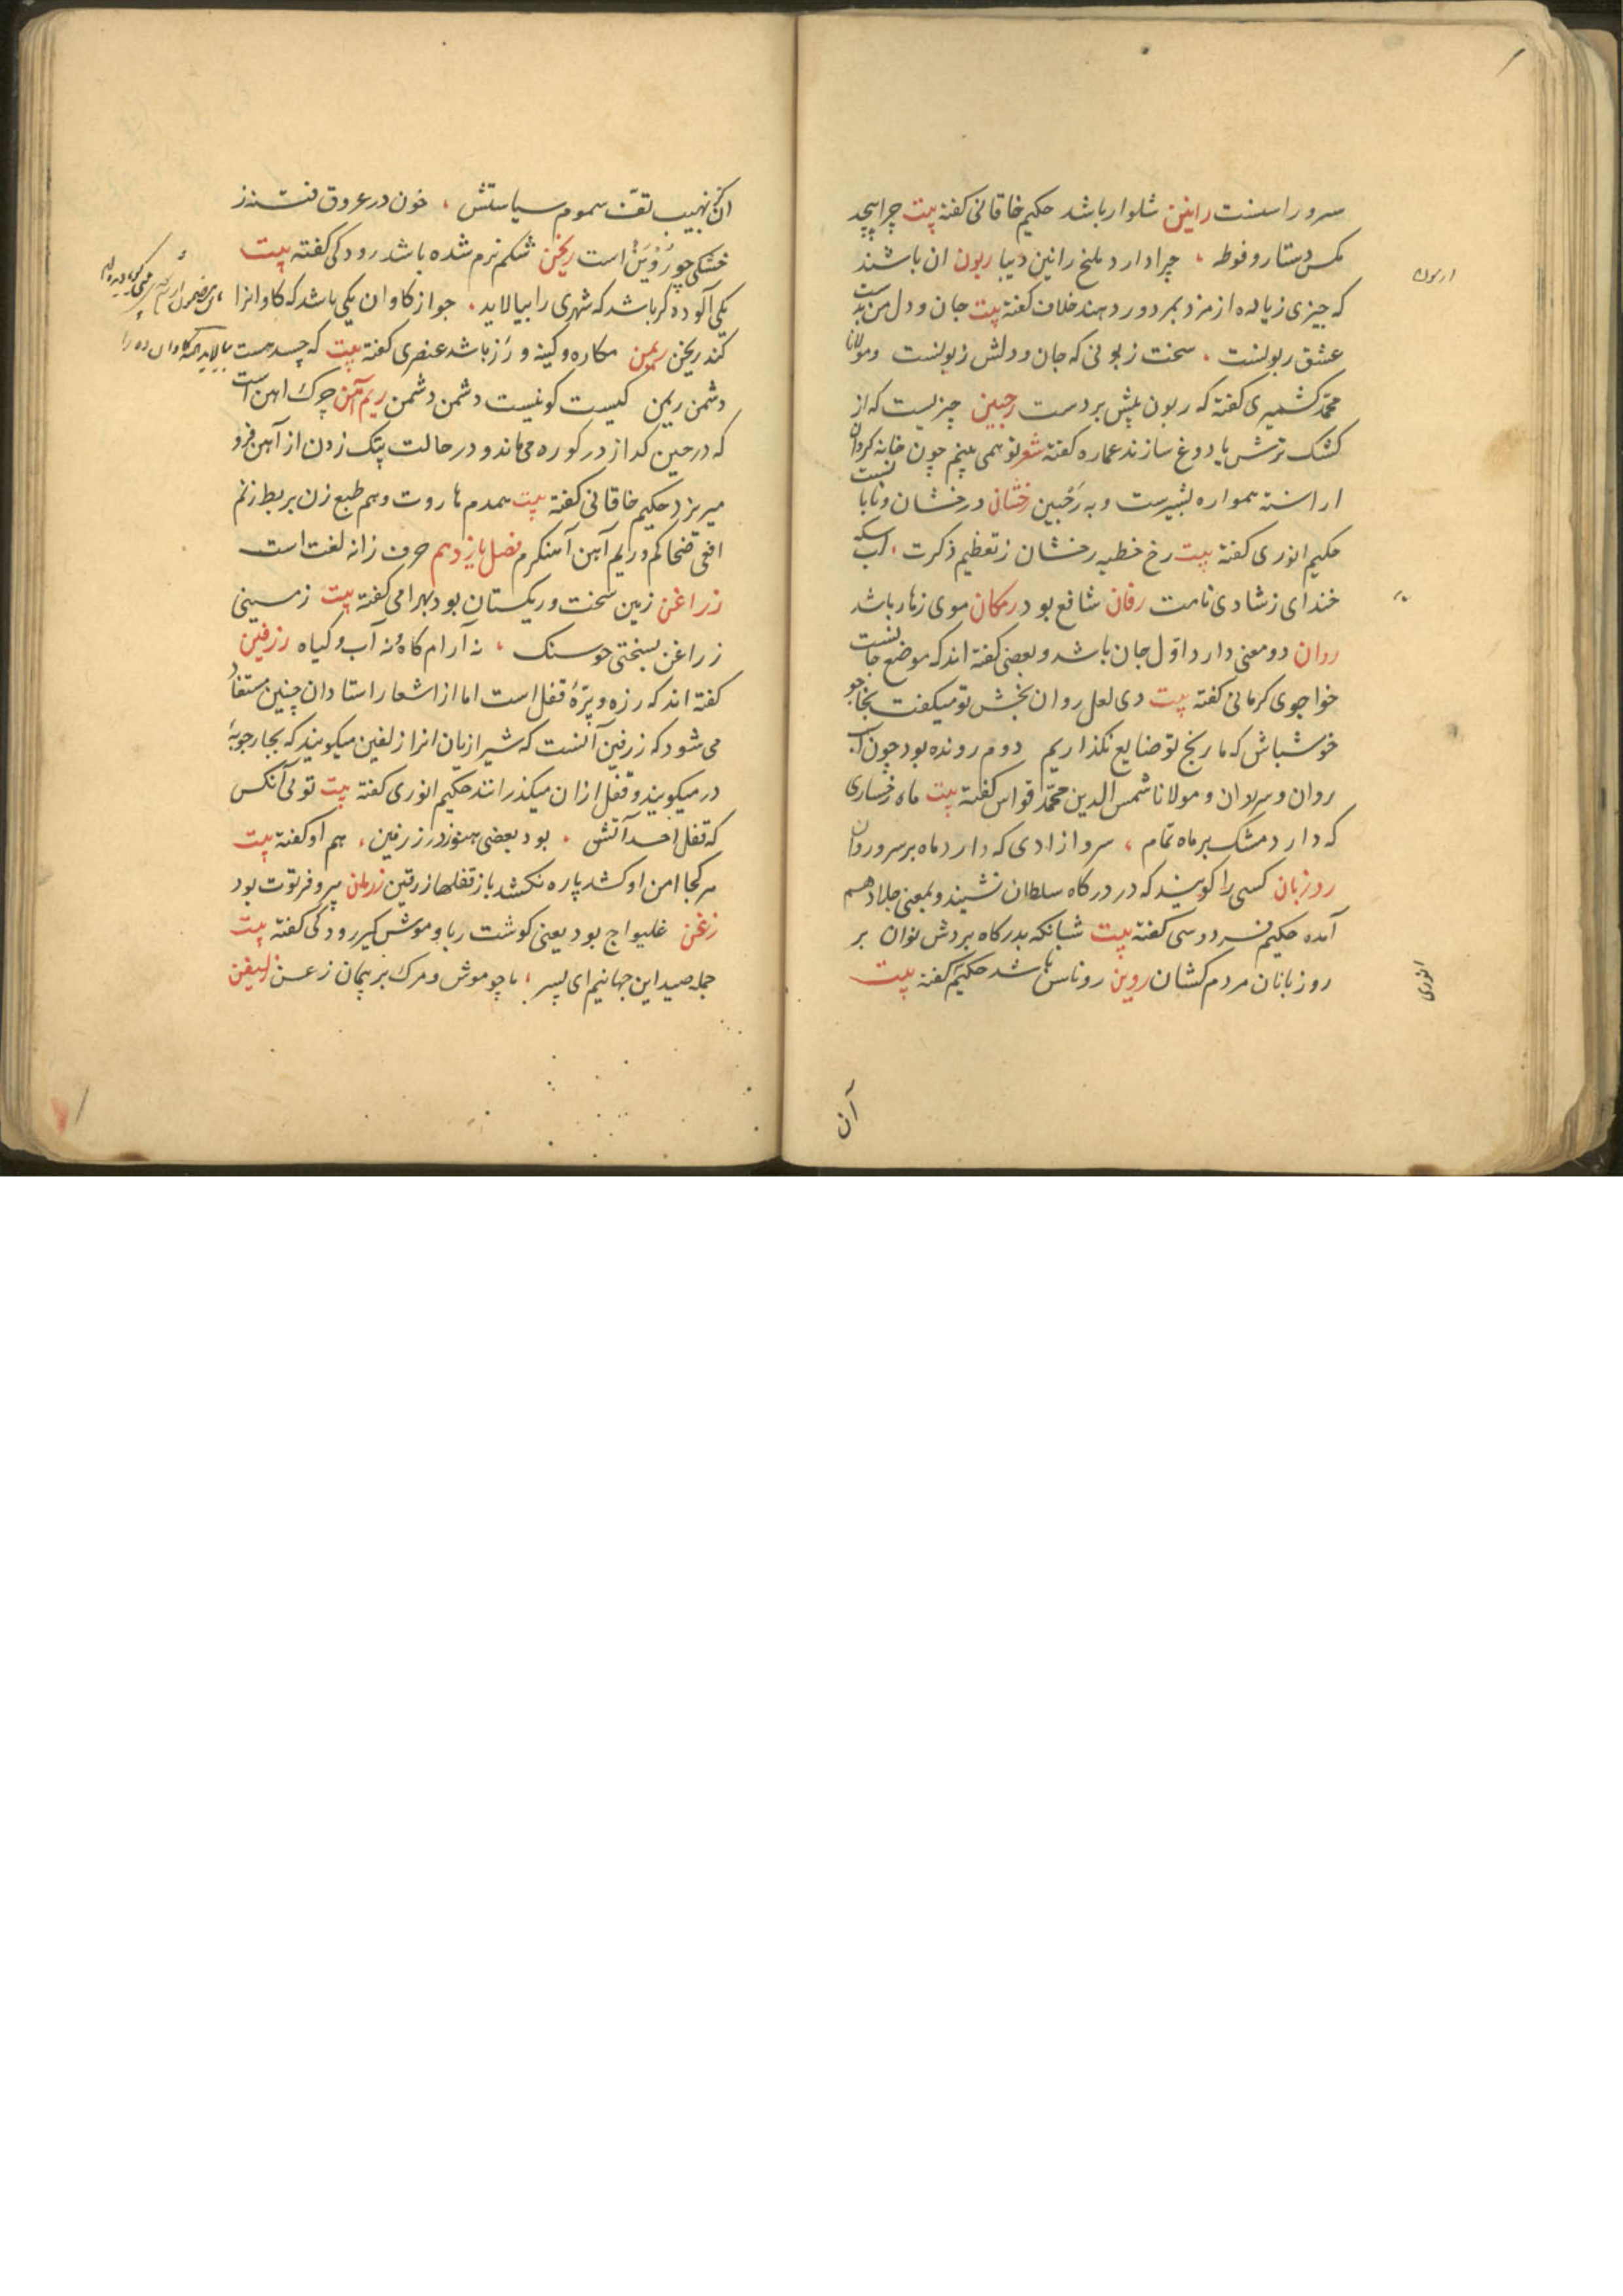 سرو راستست رانین شلوار باشد حکیم خاقانی کفته بیت چرا پیچد
مکس دستار و فوطه ، چرا دارد ملخ رانین دیبا ربون ان باشند
که چیزی زیاده از مزد بمزدور دهند خلاف کفته بیت جان و دل من بدست
عشق ربونست ، سخت زبونی که جان و دلش زبونست و مولانا
محمّد کشمیری کفته که ربون پیش بردست رخبین چیزیست که از
کشک ترش یا دوغ سازند عماره کفته شعر تو همی بینم چون خانه کردان
اراسته همواره بشیرست و به رخبین رخشانی درخشان و تابا نست
حکیم انوری کفته بیت رخ خطبه رخشان ز تعظیم ذکرت ، لب سکه
خندای ز شادی نامت رفان شافع بود رمکان موی زهار باشد
روان دو معنی دارد اوّل جان باشد و بعضی کفته اند که موضع جا نست
خواجوی کرمانی کفته بیت دی لعل روان بخش تو میکفت بخاجو
خوش باش که ما رنج تو ضایع نکذاریم دوم رونده بود چون آب
روان و سر روان و مولانا شمس الدین محمّد قواس کفته بیت ماه رخساری
که دارد مشک بر ماه تمام ، سرو ازادی که دارد ماه بر سرو روان
روزبان کسی را کویند که در درکاه سلطان نشیند و بمعنی جلاد هم
آمده حکیم فردوسی کفته بیت شبانکه بدرکاه بردش نوان بر
روزبانان مردم کشان روین روناس باشد حکیم کفته بیت
انوری
آن
ان کز نهیب تف سموم سیاستش ، خون در عروق فتنه ز
خشکی چو رُویَنْ است ریخن شکم نرم شده باشد رودکی کفته بیت
یکی آلوده کر باشد که شهری را بیالاید ، جو از کاوان یکی باشد که کاوانرا
کند ریخن ریمن مکاره و کینه ور باشد عنصری کفته بیت که چسد هست
دشمن ریمن کیست کو نیست دشمن دشمن ریم آهن چرک اهن است
که در حین کداز در کوره می ماند و در حالت پتک زدن از آهن فرو
میریزد حکیم خاقانی کفته بیت همدم هاروت و هم طبع زن بربط زنم
افعی ضحاکم و ریم آهن آهنکرم فصل یازدهم حرف زا نه لغت است
زراغن زمین سخت و ریکستان بود بهرامی کفته بیت زمینی
زراغن بسختی جو سنک ، نه آرام کاه و نه آب و کیاه زرفین
کفته اند که رزه و پرّهٔ قفل است اما از اشعار استادان چنین مستفاد
می شود که زرفین آنست که شیرازیان انرا زلفین میکویند که بچارچوبهٔ
در میکوبند و قفل ازان میکذرانند حکیم انوری کفته بیت توئی آنکس
که قفل احد آتش ، بود بعضی هنوز در زرفین ، هم او کفته بیت
هر کجا امن او کشد پاره نکشد باز قفلها زرفین زرمان پیر و فرتوت بود
زغن غلیواج بود یعنی کوشت ربا و موش کیر رودکی کفته بیت
جمله صید این جهانیم ای پسر ، ما چو موش و مرک بر پیمان زغن زلیفن